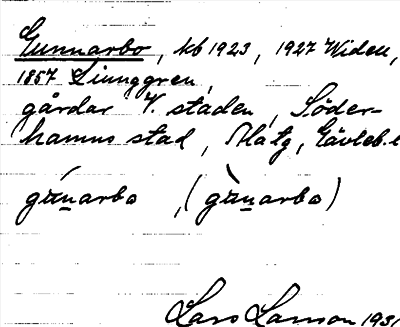 Gunnarbo, kb 1923, 1927 Widell,
1857 Ljunggren,
gårdar V. staden, Söder-
hamns stad, Matg, Gävleb. l
gunarbo, (gunarbo)
Lars Larsson 1931